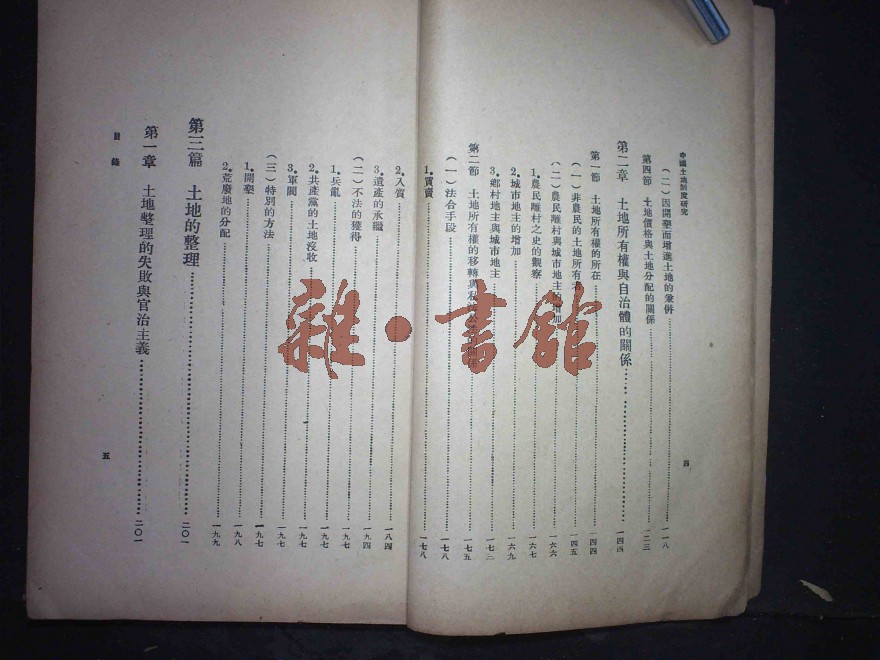 中國土地制度研究
(二)因開墾而增進土地的兼併 一一八
第四節 土地價格與土地分配的關係 一二三
第二章 土地所有權與自治體的關係 一四四
第一節 土地所有權的所在 一四四
(一)非農民的土地所有 一四五
(二)農民離村與城市地主的增加 一六六
1.農民離村之史的觀察 一六七
2.城市地主的增加 一六九
3.鄉村地主與城市地主 一七二
第二節 土地所有權的移轉與私 一七五
(一)法合手段 一七八
1.買賣 一七八
四
2.入質 一八四
3.遺產的承繼 一九四
(二)不法的獲得 一九七
1.兵亂 一九七
2.共產黨的土地沒收 一九七
3.軍閥 一九七
(三)特別的方法 一九七
1.開墾 一九八
2.荒廢地的分配 一九九
第三篇 土地的整理 二〇一
第一章 土地整理的失敗與官治主義 二〇一
目錄
五
雜·書館